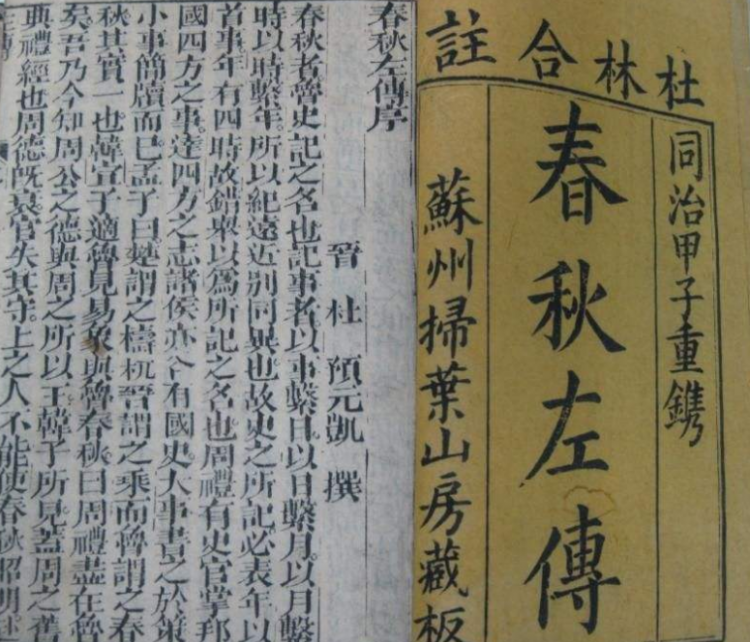 杜林合註
同治甲子重鐫
春秋左傳
蘇州掃葉山房藏板
春秋左傳序
晉 杜 預元凱 撰
春秋者魯史記之名也記事者以事繫日以日繫月以月繫
時以時繫年。所以紀遠近別同異也故史之所記必表年以
首事年有四時故錯舉以爲所記之名也周禮有史官掌邦
國四方之事。達四方之志諸侯亦各有國史大事書之於策
小事簡牘而已孟子曰楚謂之檮杌晉謂之乘而魯謂之春
秋其實一也韓宣子適魯見易象與魯春秋曰周禮盡在魯
矣吾乃今知周公之德與周之所以王韓子所見蓋周之舊
典禮經也周德旣衰官失其守。上之人不能使春秋昭明